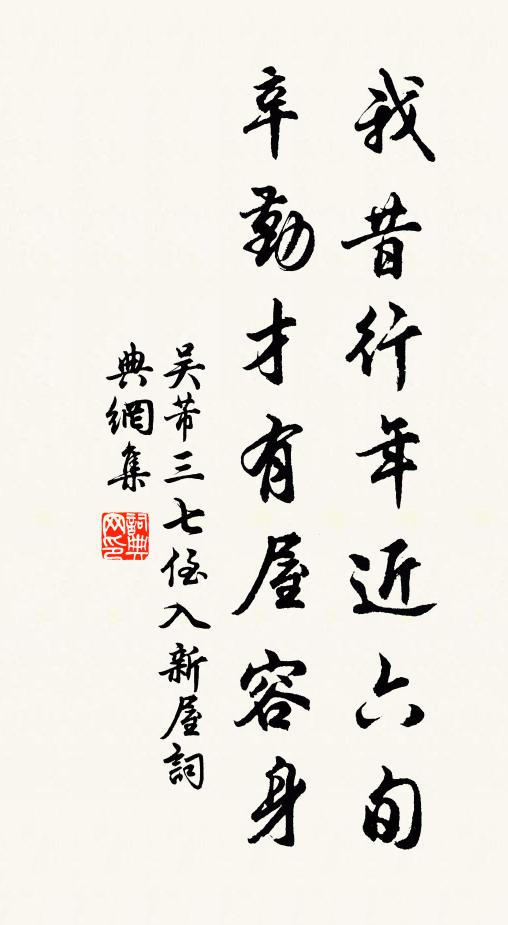 我昔行年近六旬
辛勤才有屋容身
吴芾三七侄入新屋詞
典網集
詞典網印